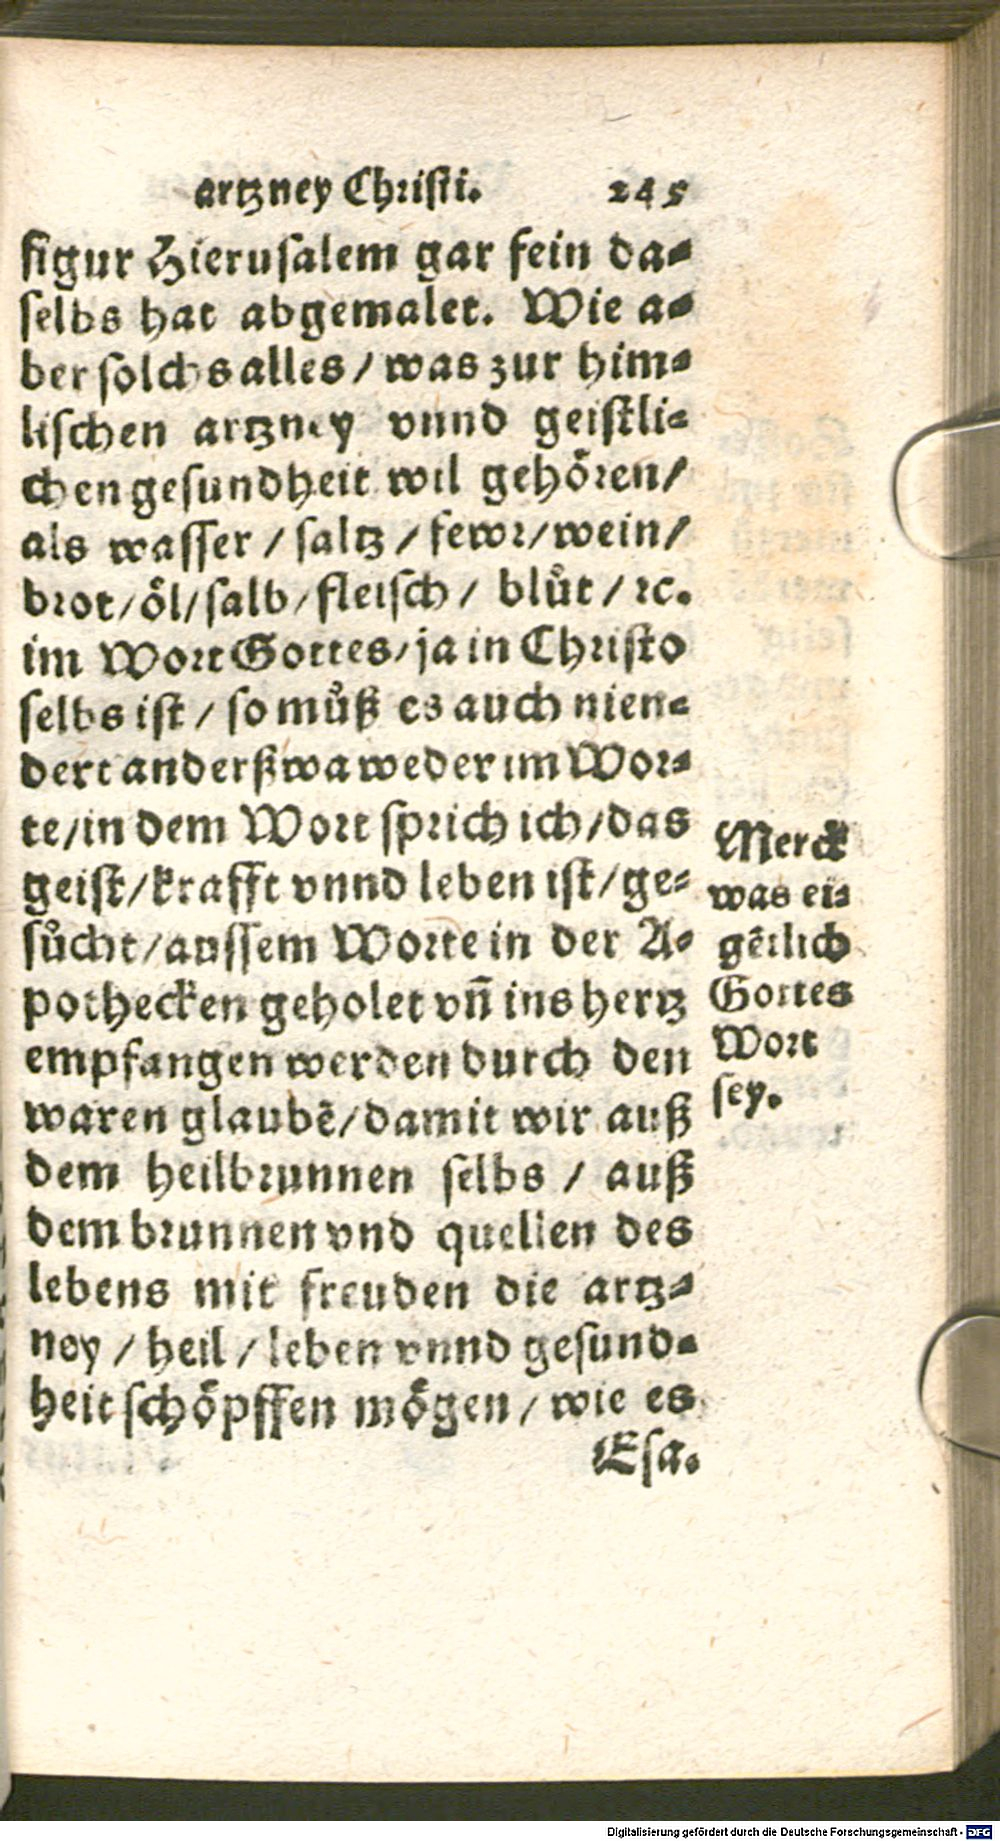 artzney Christi. 245
figur Hierusalem gar fein da⸗
selbs hat abgemalet. Wie a⸗
ber solchs alles / was zur him⸗
lischen artzney vnnd geistli⸗
chen gesundheit wil gehören /
als wasser / saltz / fewr / wein /
brot / öl / salb / fleisch / blůt / ꝛc.
im Wort Gottes / ja in Christo
selbs ist / so můß es auch nien⸗
dert anderßwa weder im Wor⸗
te / in dem Wort sprich ich / das
geist / krafft vnnd leben ist / ge⸗
sůcht / aussem Worte in der A⸗
pothecken geholet vñ ins hertz
empfangen werden durch den
waren glaubē / damit wir auß
dem heilbrunnen selbs / auß
dem brunnen vnd quellen des
lebens mit freuden die artz⸗
ney / heil / leben vnnd gesund⸗
heit schöpffen mögen / wie es
Esa.
Merck
was ei⸗
gētlich
Gottes
Wort
sey.
Digitalisierung gefördert durch die Deutsche Forschungsgemeinschaft - DFG